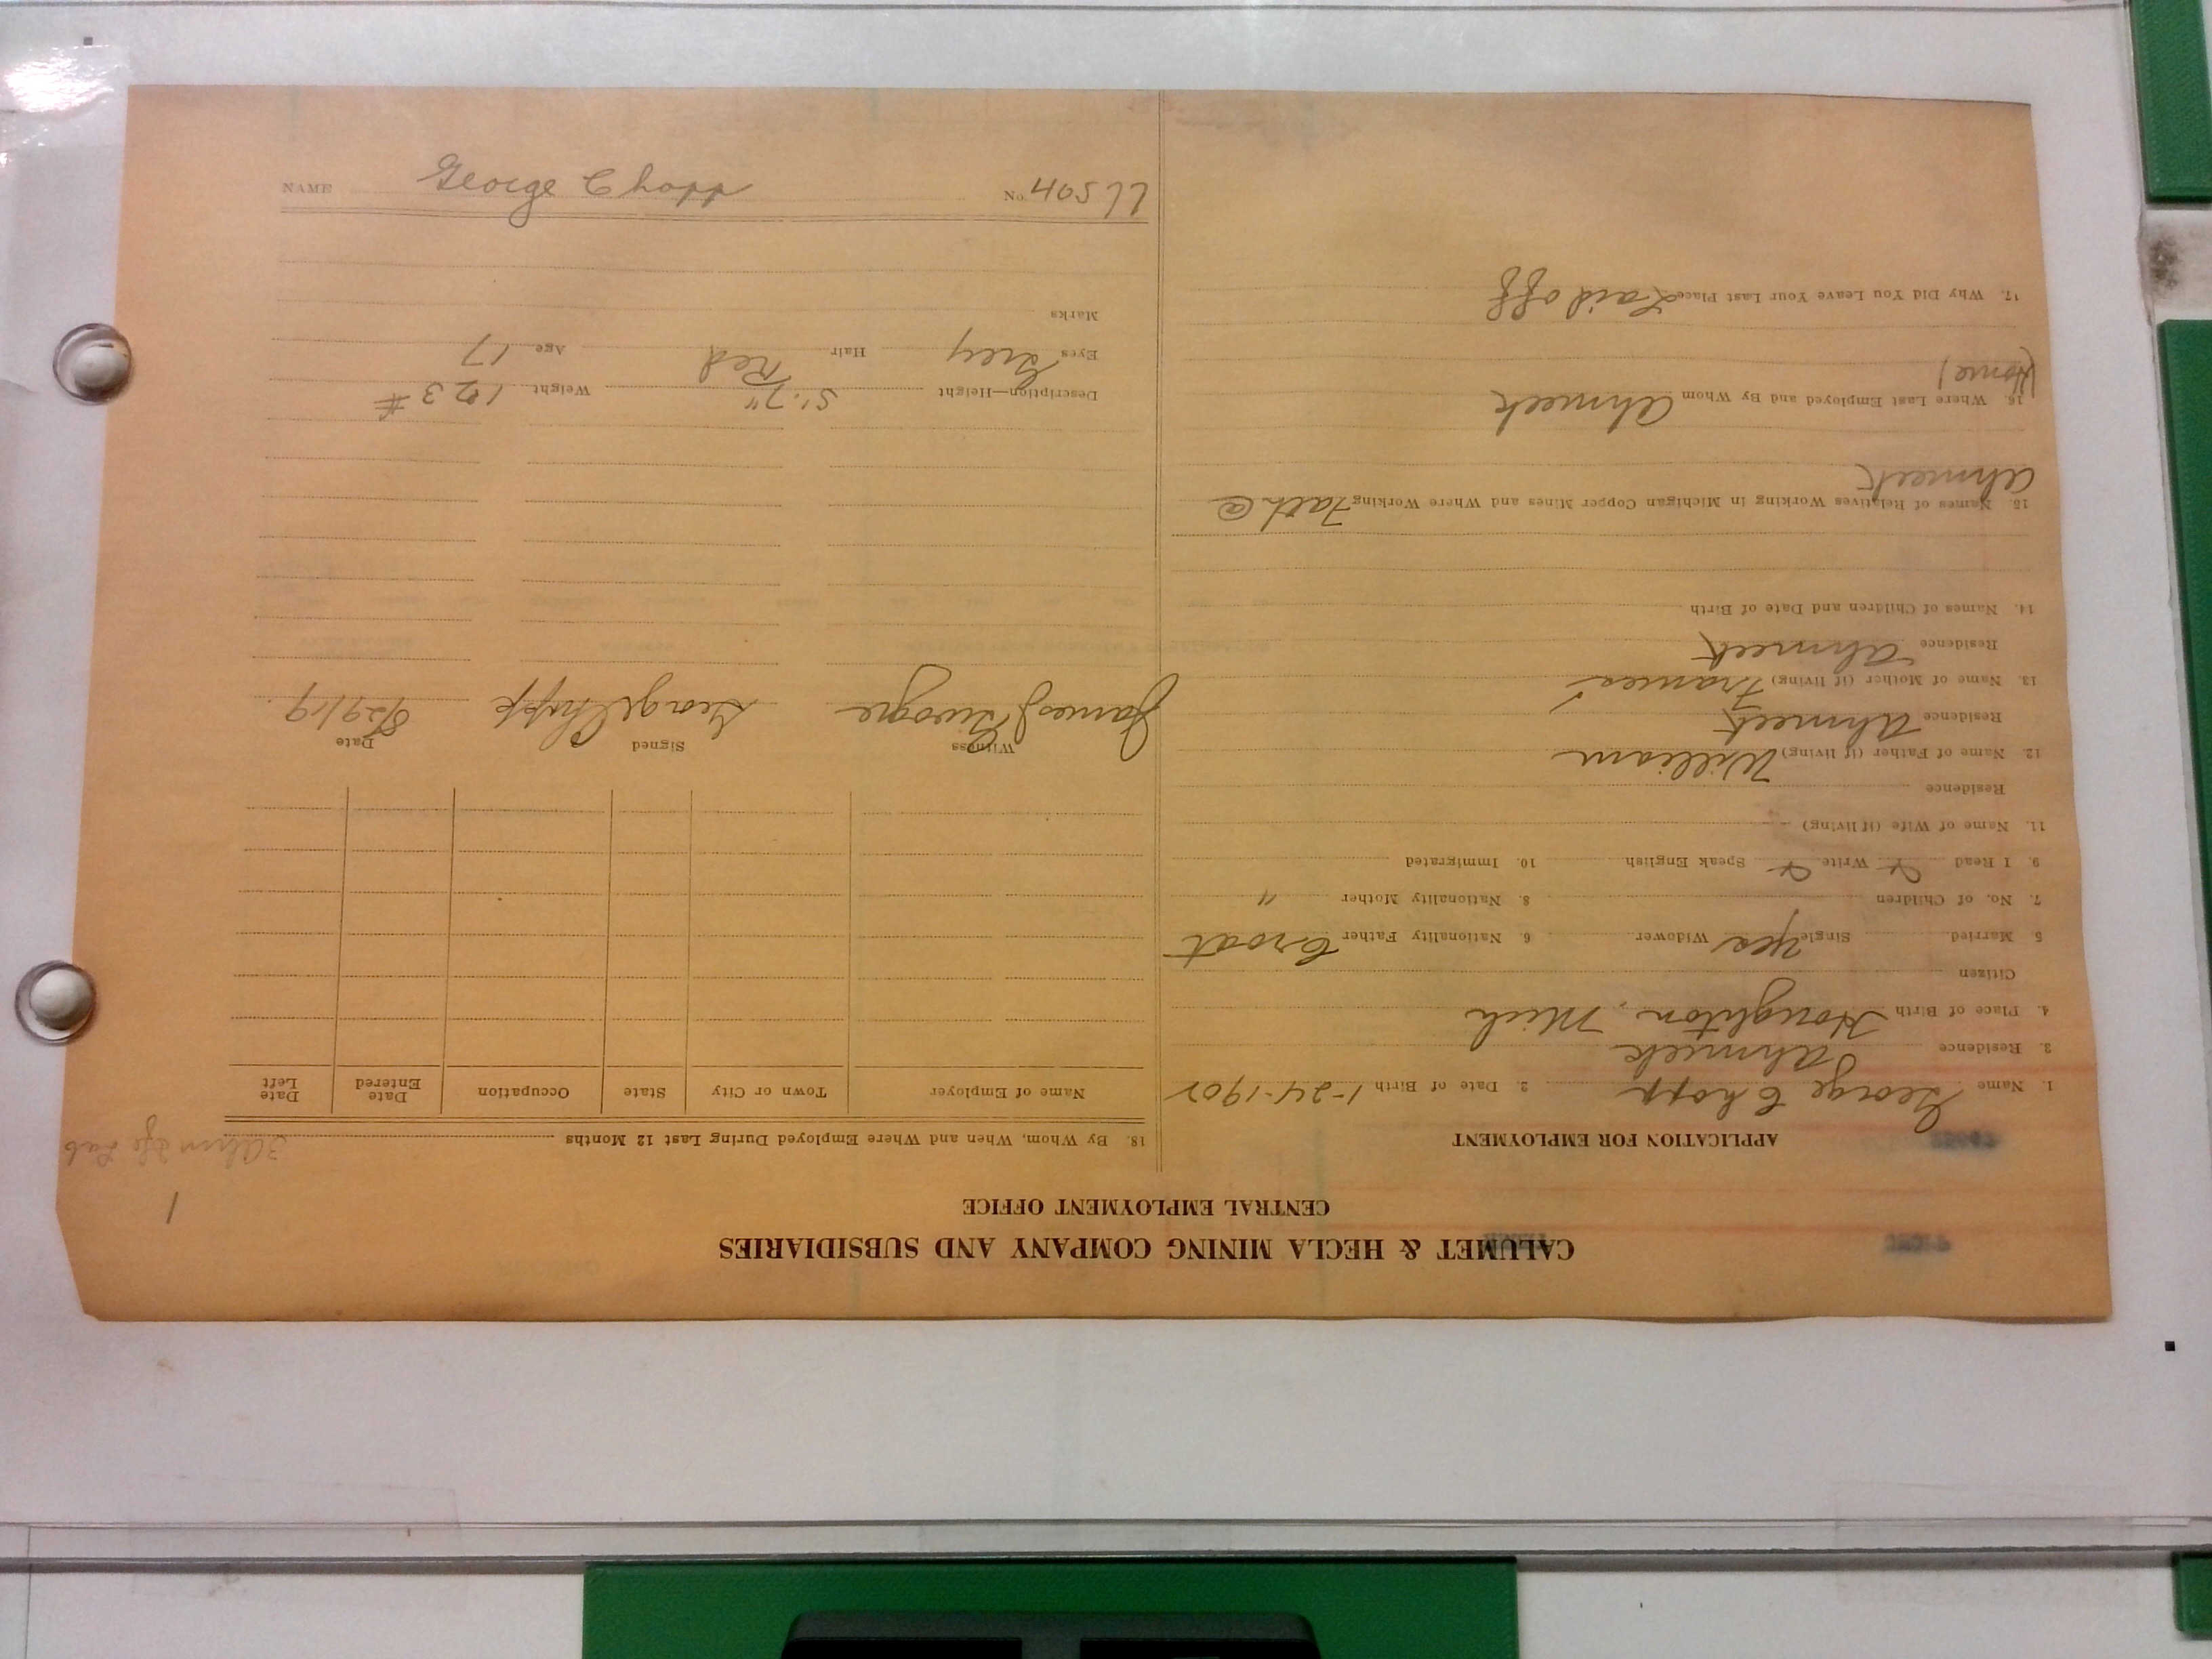 CALUMET & HECLA MINING COMPANY AND SUBSIDIARIES
CENTRAL EMPLOYMENT OFFICE
APPLICATION FOR EMPLOYMENT
1. Name George Chopp 2. Date of Birth 1-24-1902
3. Residence Ahmeek
4. Place of Birth Houghton, Mich
Citizen
5 Married Single yes Widower 6. Nationality Father Croat
7. No. of Children 8. Nationality Mother "
9. I Read Write Speak English 10. Immigrated
11. Name of Wife (if living)
Residence
12. Name of Father (if living) William
Residence Ahmeek
13. Name of Mother (if living) Frances
Residence Ahmeek
14. Names of Children and Date of Birth
15. Names of Relatives Working in Michigan Copper Mines and Where Working Fath @
Ahmeek
16. Where Last Employed and By Whom Ahmeek
(Home)
17. Why Did You Leave Your Last Place Laid off
1
18. By Whom, When and Where Employed During Last 12 Months
Name of Employer Town or City State Occupation Date Entered Date Left
Witness Signed Date
James J George Chopp 8/29/19
Description—Height 5'.7" Weight 123 #
Eyes Grey Hair Red Age 17
Marks
NAME George Chopp No. 40577